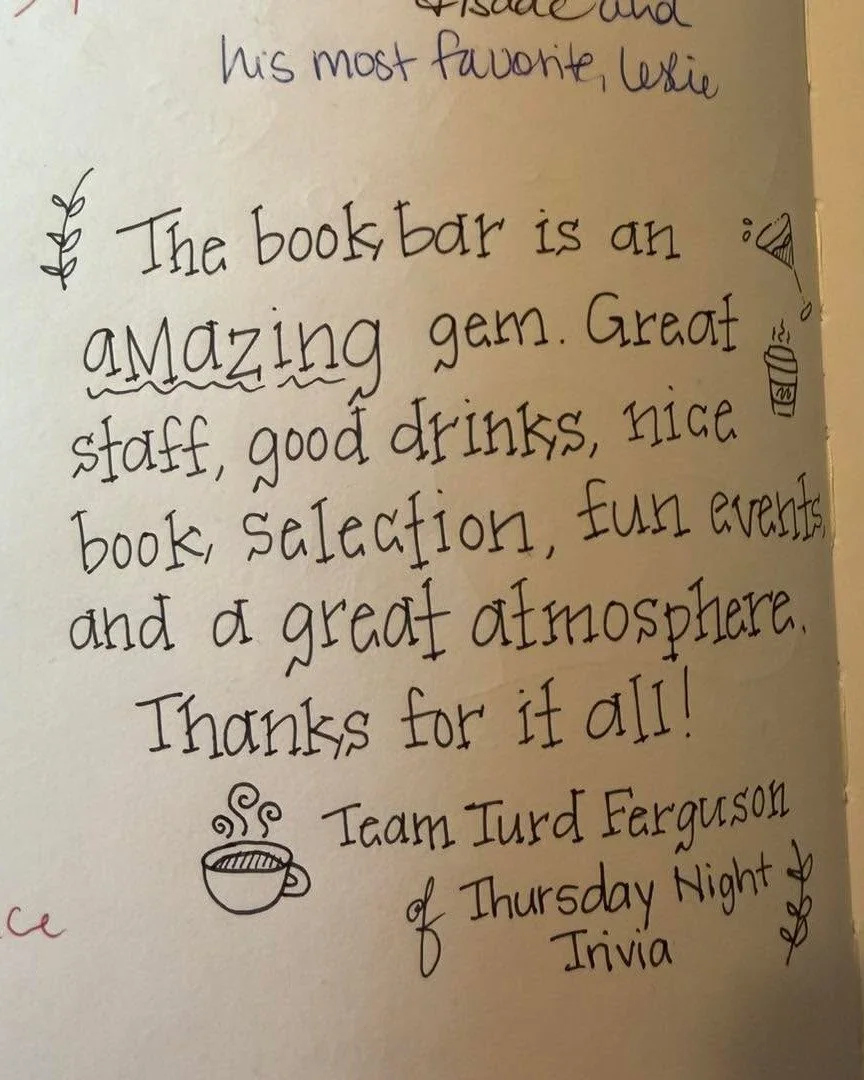 and
his most favorite, Leslie
The book bar is an
aMazing gem. Great
staff, good drinks, nice
book selection, fun events,
and a great atmosphere.
Thanks for it all!
Team Turd Ferguson
of Thursday Night
Trivia
ce